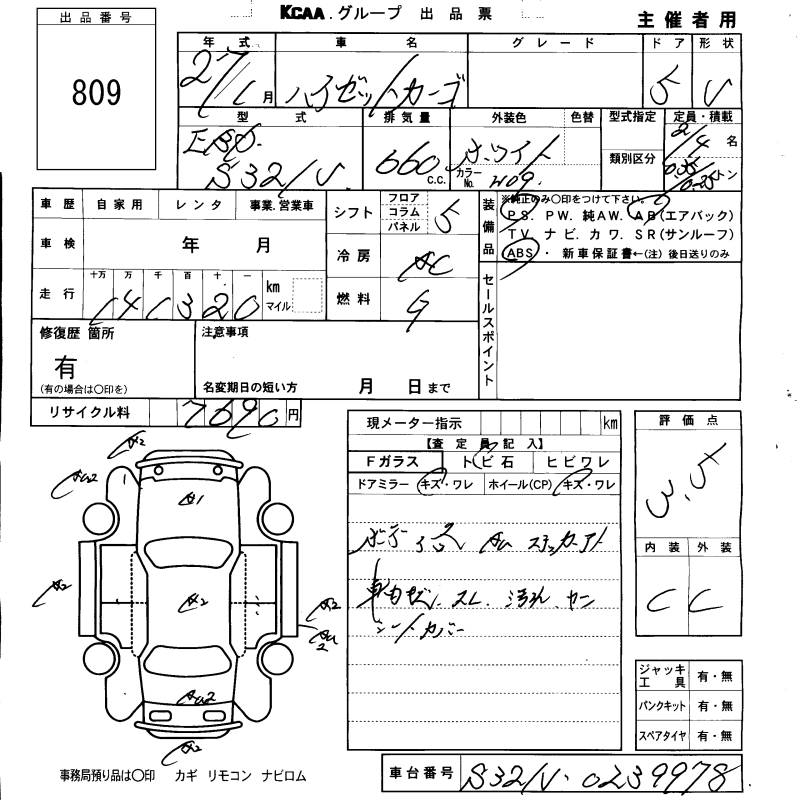 KCAA.グループ 出品票
主催者用
出品番号
809
年式 車名 グレード ドア 形状
27/1月 ハイゼットカーゴ 5 V
型式 排気量 外装色 色替 型式指定 定員・積載
EBD. S321V. 660 C.C. ホワイト 2/4名
カラーNo. W09. 類別区分 0.35/0.25トン
車歴 自家用 レンタ 事業.営業車
シフト フロア コラム パネル 5
装備品
※純正のみ〇印をつけて下さい。
PS. PW. 純AW. AB(エアバック)
TV. ナビ. カワ. SR(サンルーフ)
ABS ・ 新車保証書←(注) 後日送りのみ
車検 年 月
冷房 AC
走行 十万 万 千 百 十 一 km マイル
141320
燃料 G
セールスポイント
修復歴 箇所
有
(有の場合は〇印を)
注意事項
名変期日の短い方 月 日まで
リサイクル料 7690円
現メーター指示 km
【査定員記入】
Fガラス トビ石 ヒビワレ
ドアミラー キズ・ワレ ホイール(CP) キズ・ワレ
評価点
3.5
内装 外装
C C
A2
AU2
A1
A2
A2
A2
A2
AU2
AU2
A2
AU ステッカーアト
スレ. 汚れ.
シートカバー
ジャッキ工具 有・無
パンクキット 有・無
スペアタイヤ 有・無
事務局預り品は〇印 カギ リモコン ナビロム
車台番号 S321V-0239978